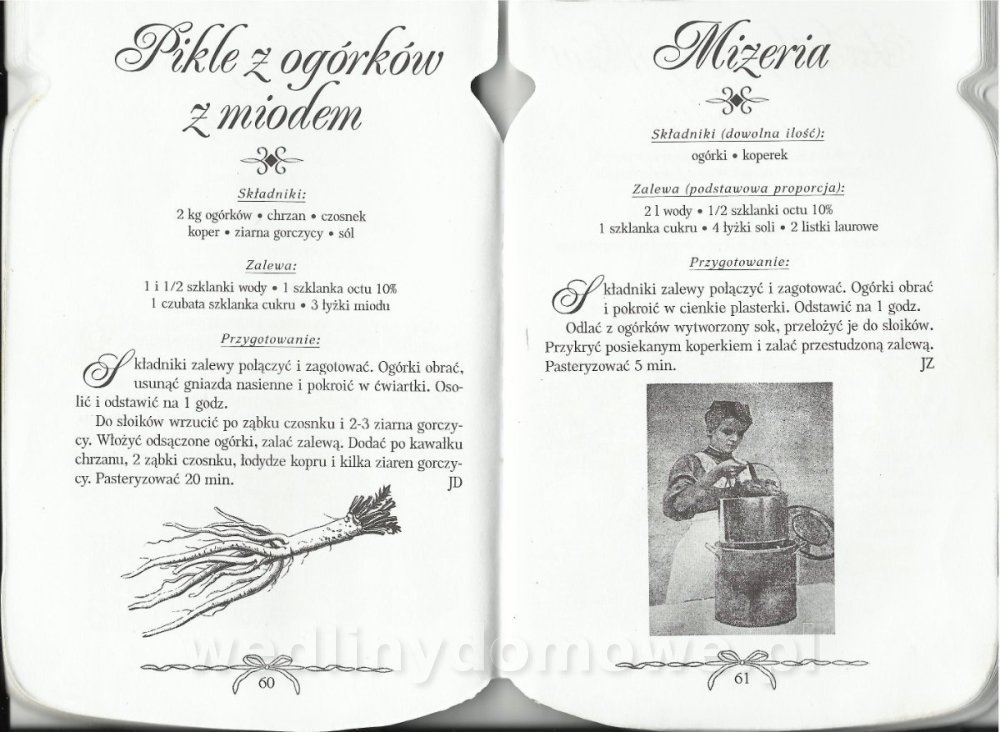 Pikle z ogórków
z miodem
Składniki:
2 kg ogórków • chrzan • czosnek
koper • ziarna gorczycy • sól
Zalewa:
1 i 1/2 szklanki wody • 1 szklanka octu 10%
1 czubata szklanka cukru • 3 łyżki miodu
Przygotowanie:
Składniki zalewy połączyć i zagotować. Ogórki obrać,
usunąć gniazda nasienne i pokroić w ćwiartki. Oso-
lić i odstawić na 1 godz.
Do słoików wrzucić po ząbku czosnku i 2-3 ziarna gorczy-
cy. Włożyć odsączone ogórki, zalać zalewą. Dodać po kawałku
chrzanu, 2 ząbki czosnku, łodydze kopru i kilka ziaren gorczy-
cy. Pasteryzować 20 min. JD
60
Mizeria
Składniki (dowolna ilość):
ogórki • koperek
Zalewa (podstawowa proporcja):
2 l wody • 1/2 szklanki octu 10%
1 szklanka cukru • 4 łyżki soli • 2 listki laurowe
Przygotowanie:
Składniki zalewy połączyć i zagotować. Ogórki obrać
i pokroić w cienkie plasterki. Odstawić na 1 godz.
Odlać z ogórków wytworzony sok, przełożyć je do słoików.
Przykryć posiekanym koperkiem i zalać przestudzoną zalewą.
Pasteryzować 5 min. JZ
61
wedlinydomowe.pl